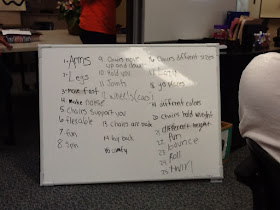 1. Arms
2. Legs
3. move fast
4. make noise
5. Chairs support you
6 flexable
7 fun
8 spin
9 Chairs move up and down
10 Hold you
11 Joints
12 wheels (cool)
13 Chairs are made
14 lay back
15 comfy
16 Chairs different sizes
18
19 different colors
20 Chairs hold weight
21 different heights
22 Fun
23 bounce
24 Roll
25 twirl